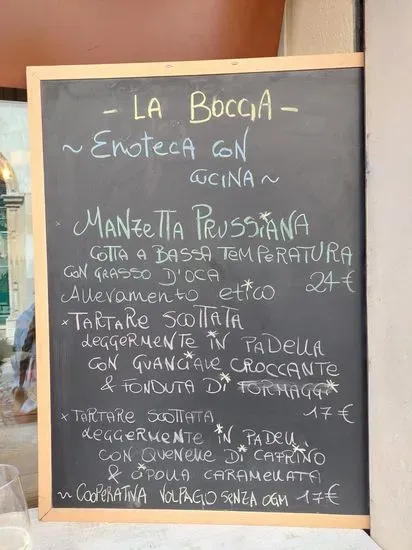 - LA BOCCIA -
~ ENOTECA CON
CUCINA ~
x MANZETTA PRUSSIANA
COTTA A BASSA TEMPERATURA
CON GRASSO D'OCA 24€
Allevamento etico
x TARTARE SCOTTATA
LEGGERMENTE IN PADELLA
CON GUANCIALE CROCCANTE
& FONDUTA DI FORMAGGI
17€
x TARTARE SCOTTATA
LEGGERMENTE IN PADELL
CON QUENELLE DI CAPRINO
& CIPOLLA CARAMELLATA
~ COOPERATIVA VOLPAGIO SENZA OGM 17€